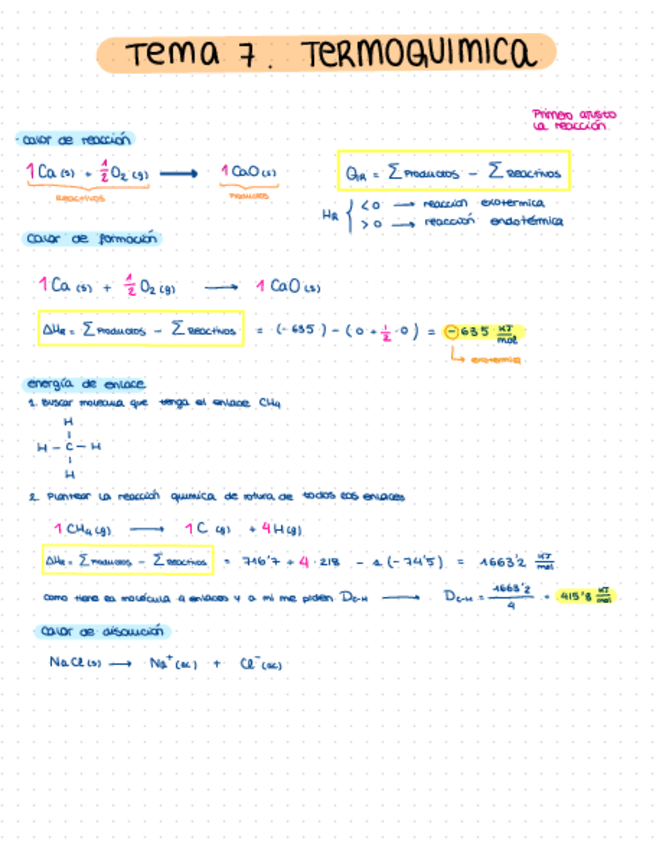 Tema 7. TERMOQUIMICA
Primero ajusto
la reacción
· calor de reacción
1 Ca (s) + 1/2 O2 (g) ⟶ 1 CaO (s)
Reactivos
Productos
QR = Σ Productos - Σ Reactivos
HR { < 0 → reacción exotermica
> 0 → reacción endotérmica
calor de formación
1 Ca (s) + 1/2 O2 (g) ⟶ 1 CaO (s)
ΔHR = Σ Productos - Σ Reactivos = (-635) - (0 + 1/2 · 0) = -635 KJ/mol
↳ exotermica
energía de enlace
1. Buscar molecula que tenga el enlace CH4
H
H - C - H
H
2. Plantear la reacción quimica de rotura de todos los enlaces
1 CH4 (g) ⟶ 1 C (g) + 4 H (g)
ΔHR = Σ Productos - Σ Reactivos = 716'7 + 4 · 218 - 1 (-74'5) = 1663'2 KJ/mol
como tiene la molécula 4 enlaces y a mi me piden DC-H ⟶ DC-H = 1663'2/4 = 415'8 KJ/mol
calor de disolución
NaCl (s) ⟶ Na+ (ac) + Cl- (ac)